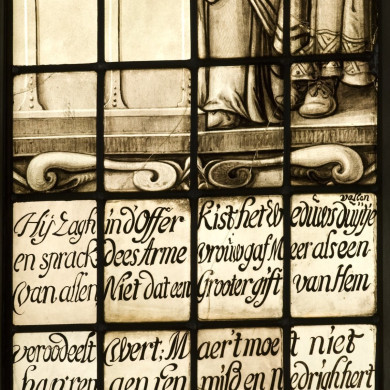 vallen
Hij Zagh in d'Offer Kist het Weeduws duijtje
en sprack dees Arme vrouw gaf Meer als een
van allen Niet dat een Grooter gift van Hem
veroodeelt Wert; Maer't moet niet
aen een mild en Nedrigh hert